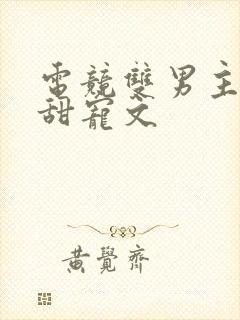 電競雙男主
甜寵文
黃覺齊